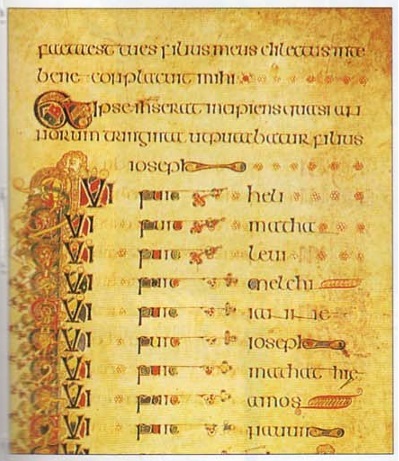 factaest tues filius meus dilectus inte
bene conplacuit mihi
Et ipse ihs erat incipiens quasi an
norum triginta utputabatur filius
ioseph
QVI fuit heli
QVI fuit matha
QVI fuit leui
QVI fuit melchi
QVI fuit iannae
QVI fuit ioseph
QVI fuit mathathie
QVI fuit amos
QVI fuit nauum